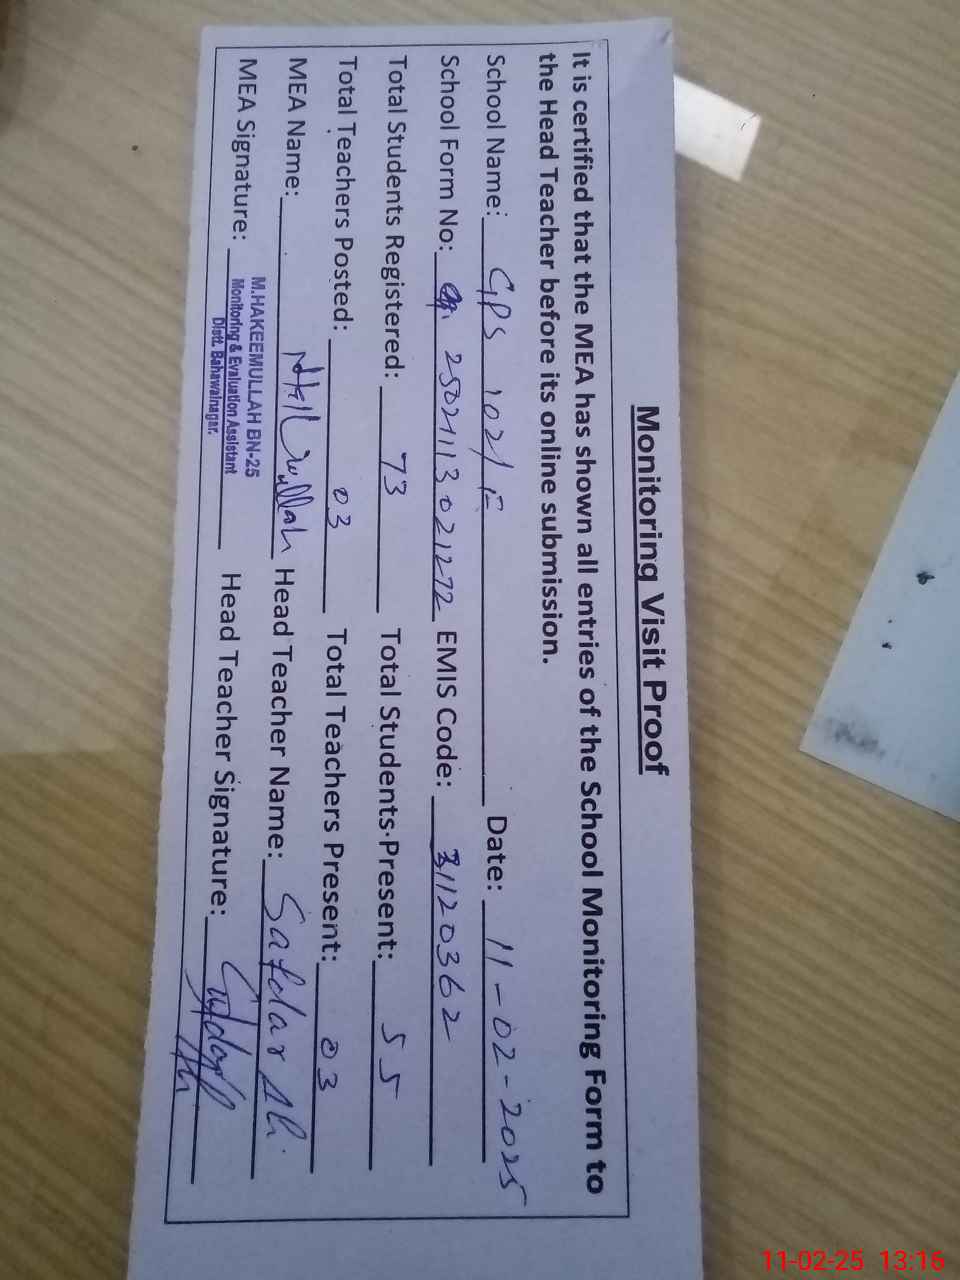 Monitoring Visit Proof
It is certified that the MEA has shown all entries of the School Monitoring Form to
the Head Teacher before its online submission.
School Name: GPS 102/F Date: 11-02-2025
School Form No: 25021113021272 EMIS Code: 31120362
Total Students Registered: 73 Total Students Present: 55
Total Teachers Posted: 03 Total Teachers Present: 03
MEA Name: Head Teacher Name: Safdar Ali
MEA Signature: Head Teacher Signature:
M.HAKEEMULLAH BN-25
Monitoring & Evaluation Assistant
Distt. Bahawalnagar.
11-02-25 13:16